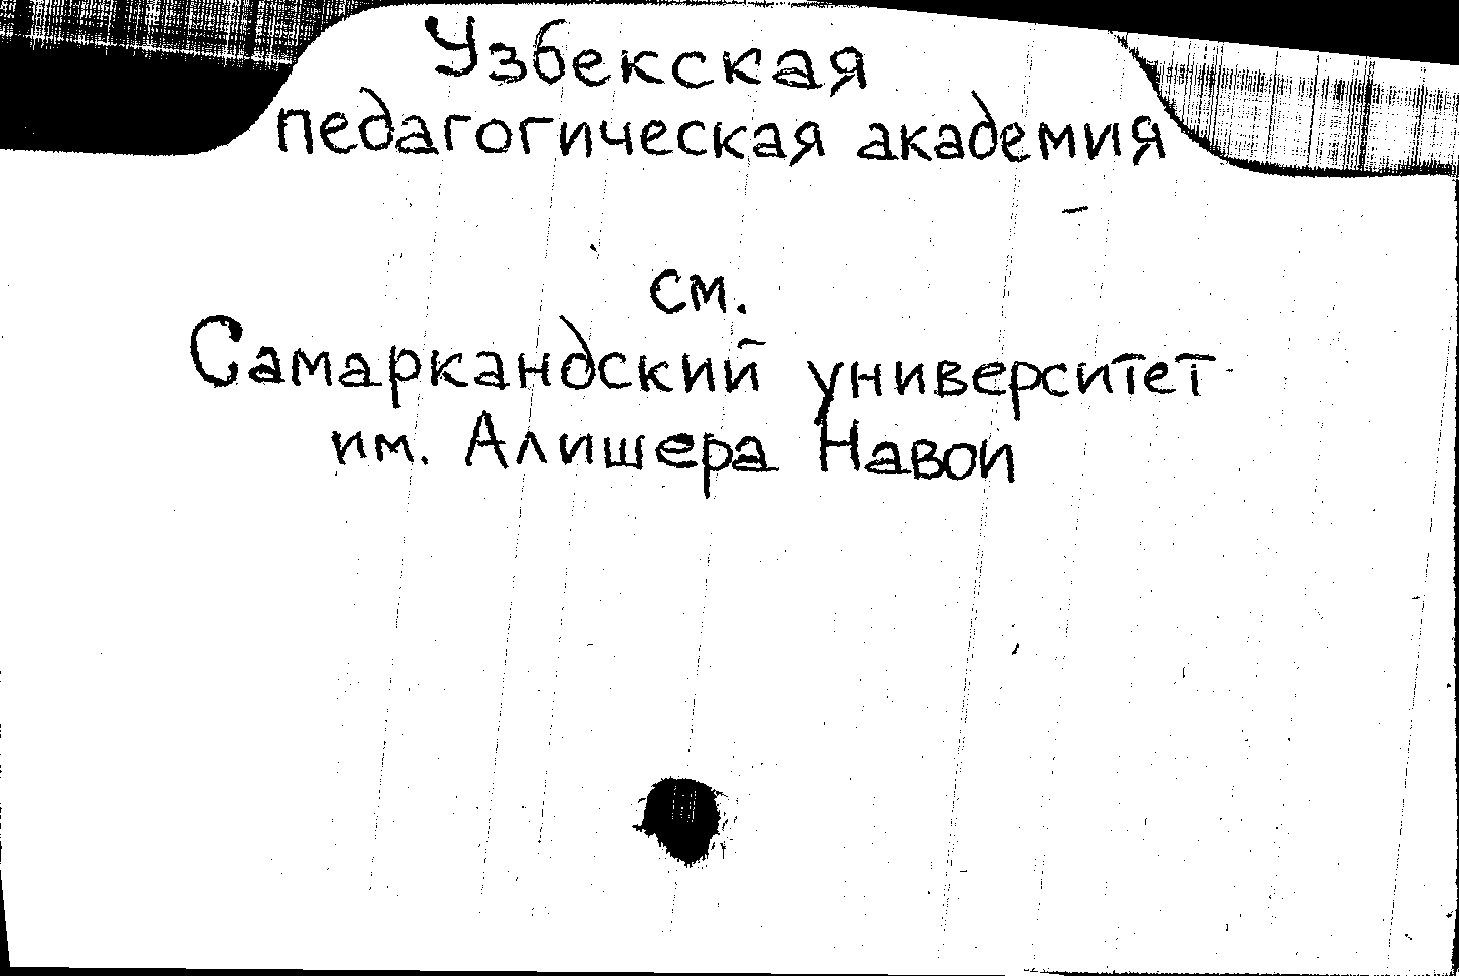 Узбекская
педагогическая академия
см.
Самаркандский университет
им. Алишера Навои